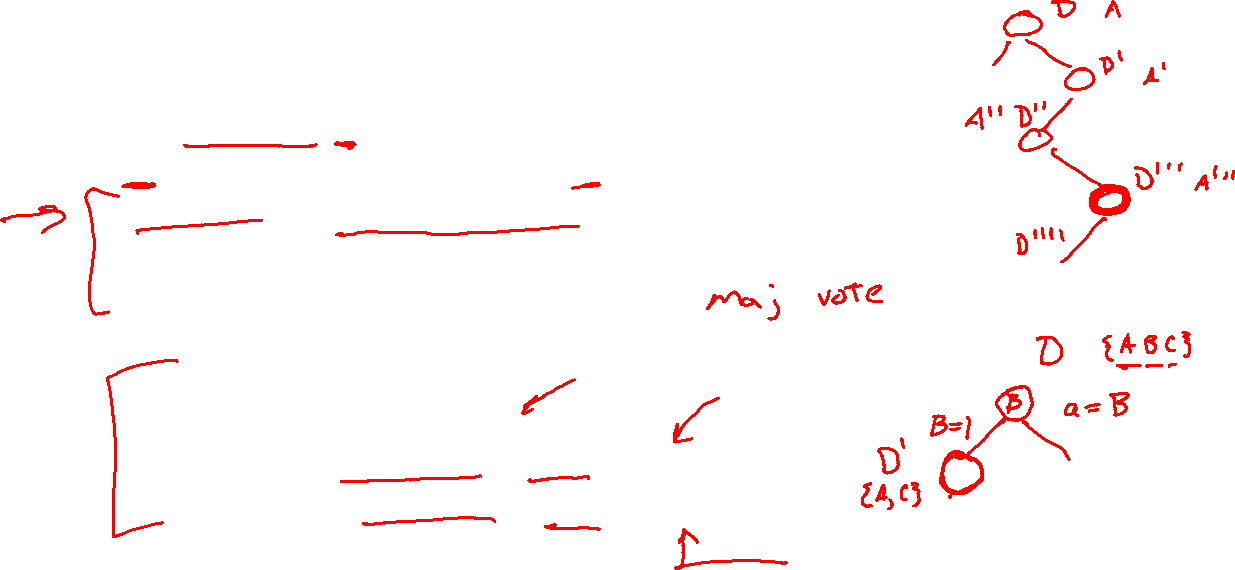 D A
D' A'
A'' D''
D''' A'''
D''''
maj vote
D {A B C}
B a = B
B=1
D'
{A, C}